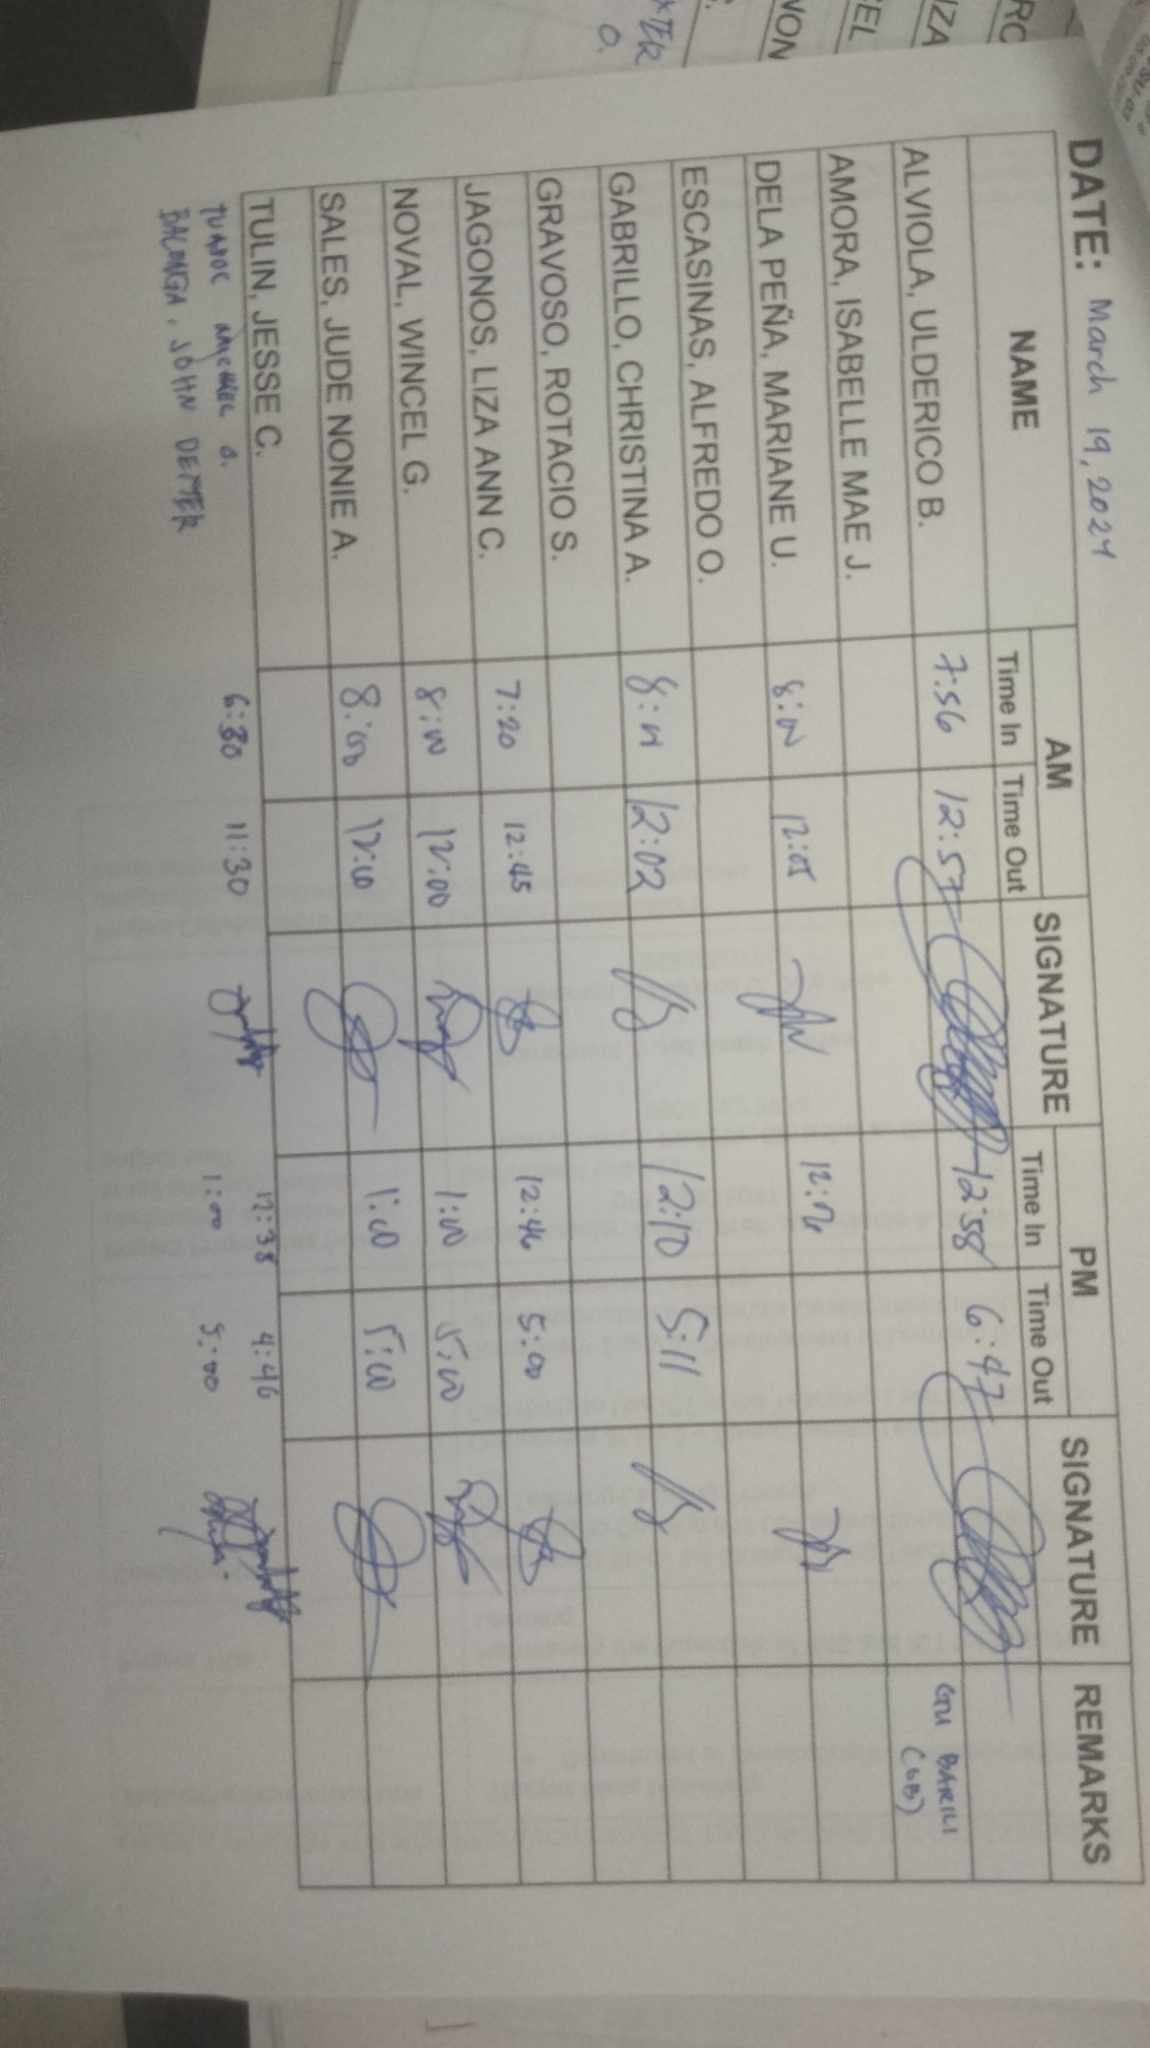 DATE: March 19, 2024
NAME AM SIGNATURE PM SIGNATURE REMARKS
Time In Time Out Time In Time Out
ALVIOLA, ULDERICO B. 7:56 12:57 12:58 6:47 GU BARILI
(OB)
AMORA, ISABELLE MAE J.
DELA PEÑA, MARIANE U. 8:00 12:05
ESCASINAS, ALFREDO O.
GABRILLO, CHRISTINA A. 12:02 12:10 5:11
GRAVOSO, ROTACIO S.
JAGONOS, LIZA ANN C. 7:20 12:45 12:46 5:00
NOVAL, WINCEL G. 8:00 12:00 1:00 5:00
SALES, JUDE NONIE A. 8:00 12:00 1:00 5:00
TULIN, JESSE C.
6:30 11:30 12:38 4:46
BACONGA, JOHN DEXTER 1:00 5:00